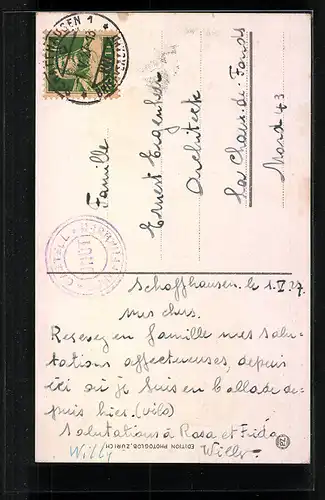 Famille
Ernest
Architecte
La Chaux-de-Fonds
Nord 43
Schaffhouse le 1.V.27
mes chers.
Recevez en famille mes salu-
tations affecteuses, depuis
ici où je suis en ballade de-
puis hier. (vélo)
Salutations à Rosa et Frida
Willy
Willy
EDITION PHOTOGLOB, ZÜRICH